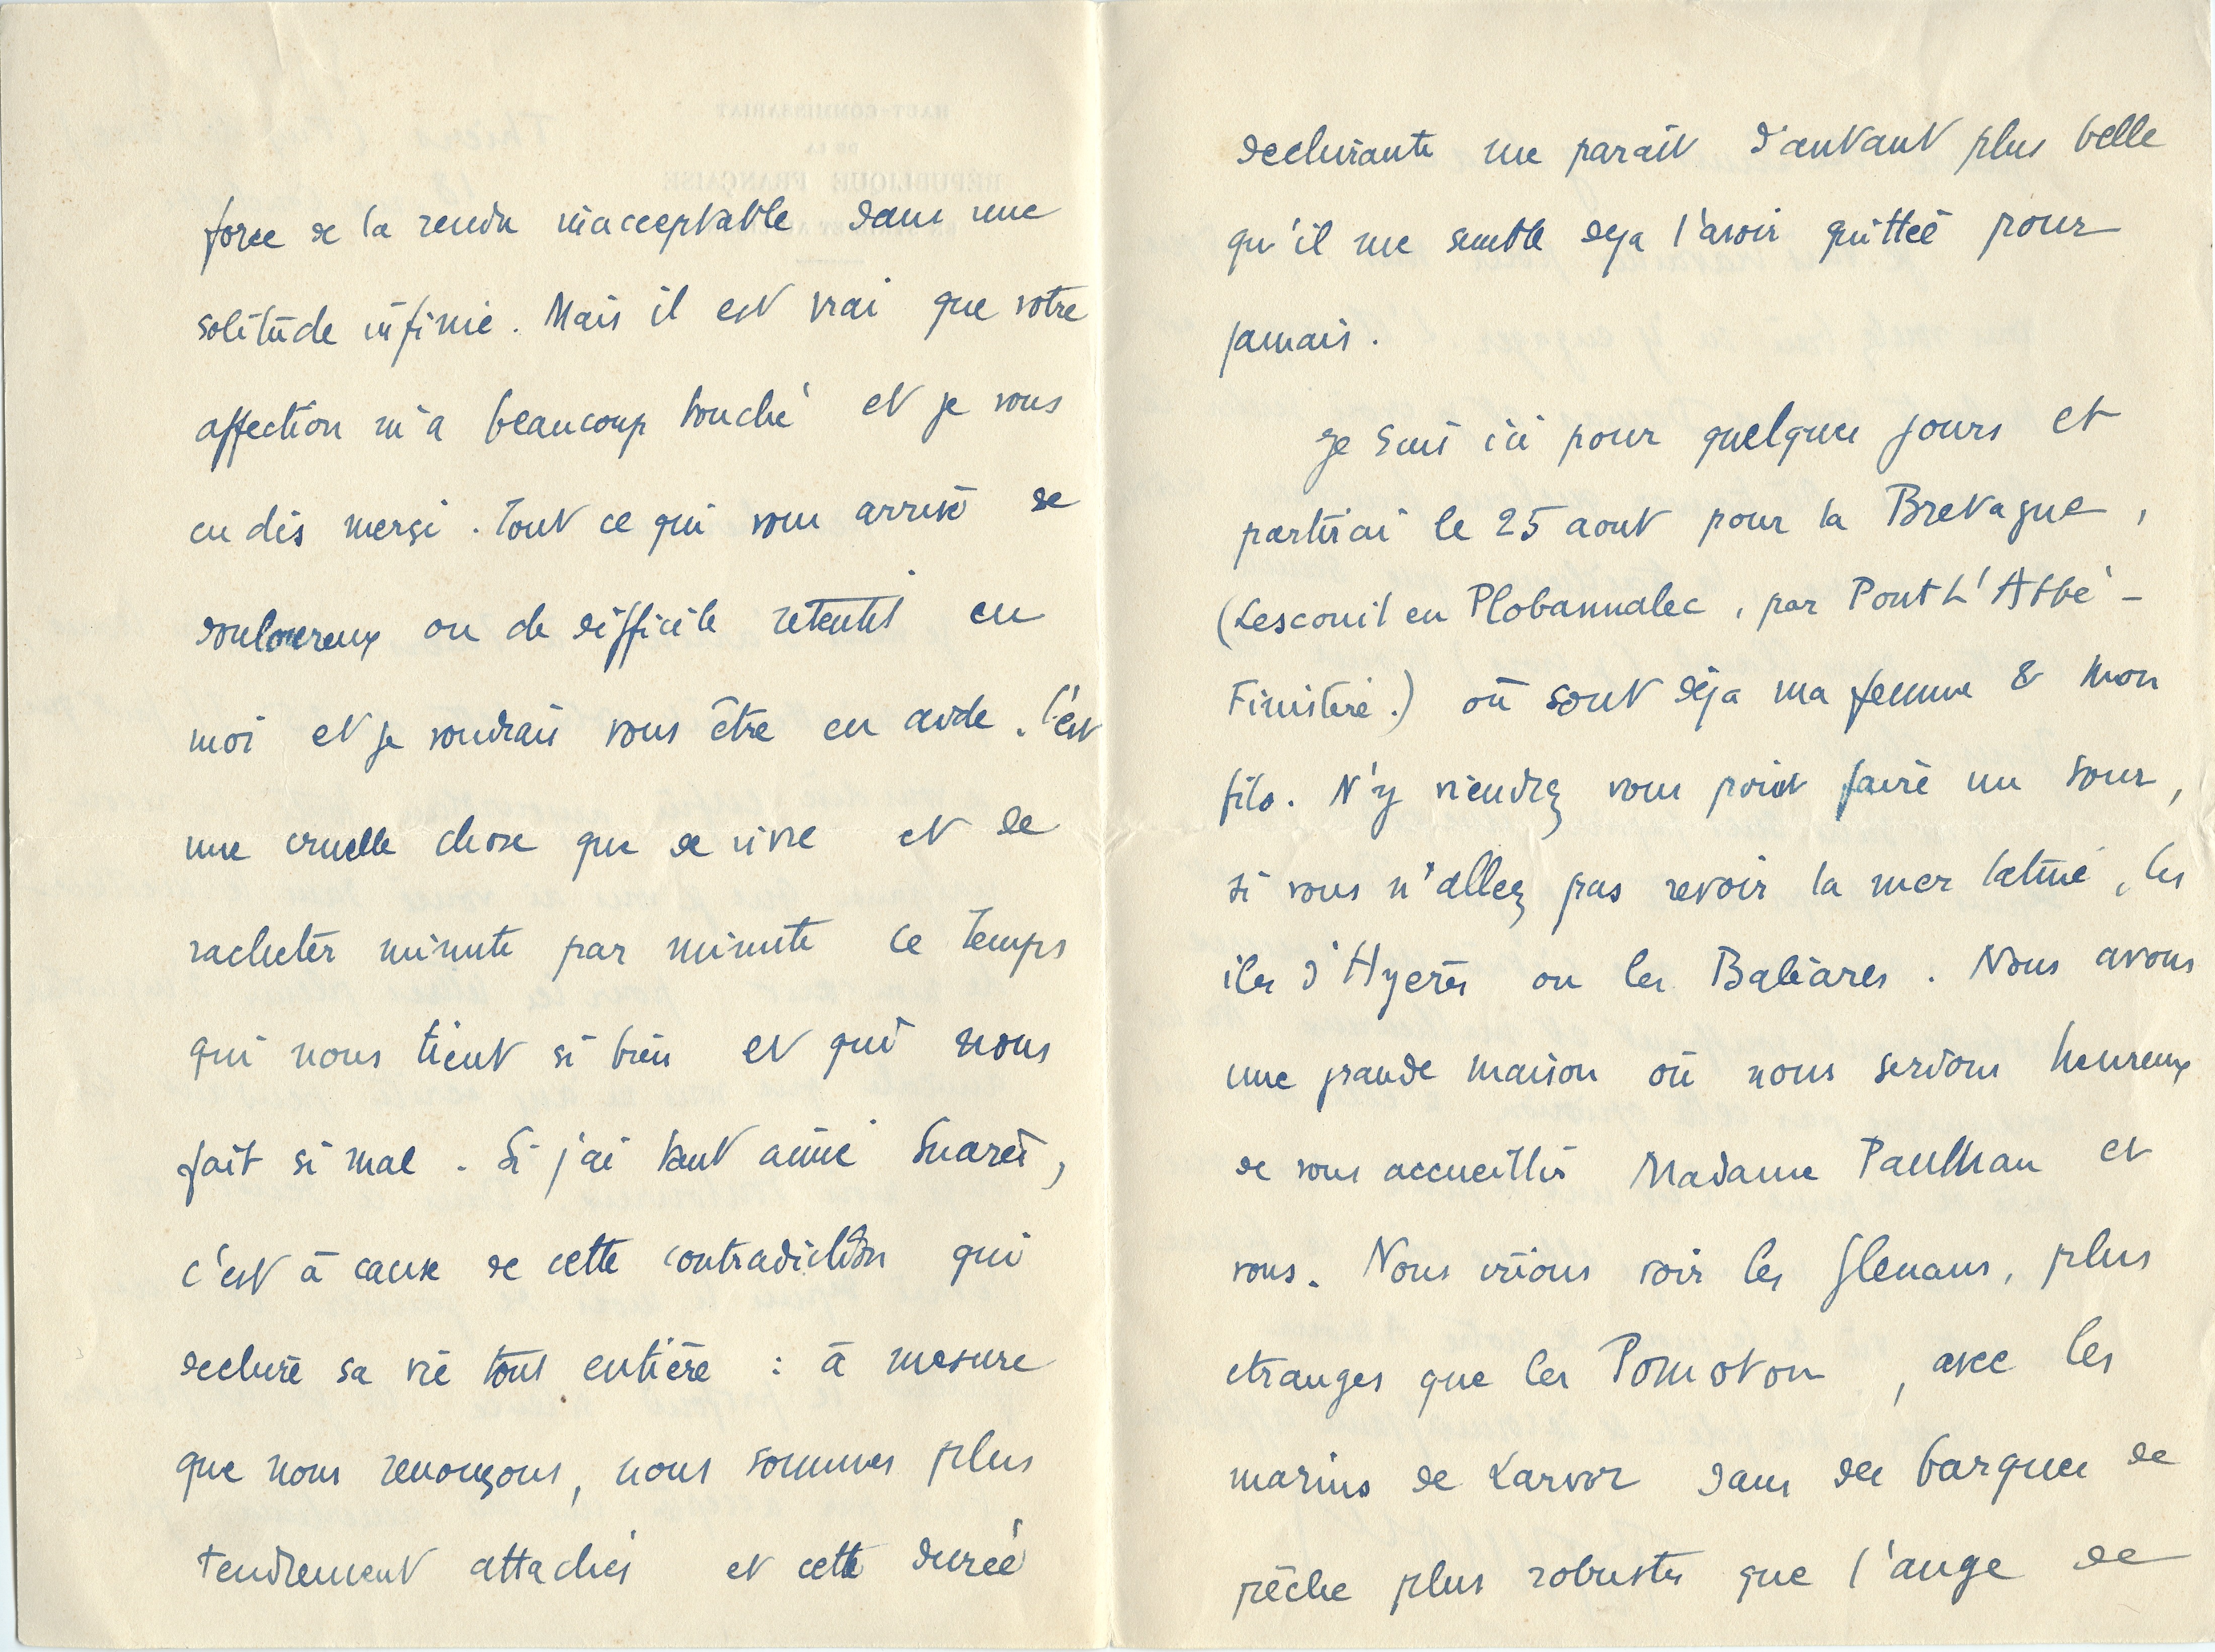 force de la rendre inacceptable dans une
solitude infinie. Mais il est vrai que votre
affection m'a beaucoup touché et je vous
en dis merçi. Tout ce qui vous arrive de
douloureux ou de difficile retentit en
moi et je voudrais vous être en aide. C'est
une cruelle chose que de vivre et de
racheter minute par minute ce temps
qui nous tient si bien et qui nous
fait si mal. Si j'ai tant aimé Suarès,
c'est à cause de cette contradiction qui
dechire sa vie tout entière : à mesure
que nous renonçons, nous sommes plus
tendrement attachés et cette durée
dechirante me parait d'autant plus belle
qu'il me semble deja l'avoir quittée pour
jamais.
Je suis ici pour quelques jours et
partirai le 25 aout pour la Bretagne,
(Lesconil en Plobannalec, par Pont L'Abbé -
Finistere.) où sont déja ma femme & mon
fils. N'y viendrez vous point faire un tour,
si vous n'allez pas revoir la mer latine, les
iles d'Hyeres ou les Baléares. Nous avons
une grande maison où nous serions heureux
de vous accueillir Madame Paulhan et
vous. Nous irions voir les Glenans, plus
etranges que les Pomotou, avec les
marins de Larvor dans des barques de
pêche plus robustes que l'ange de